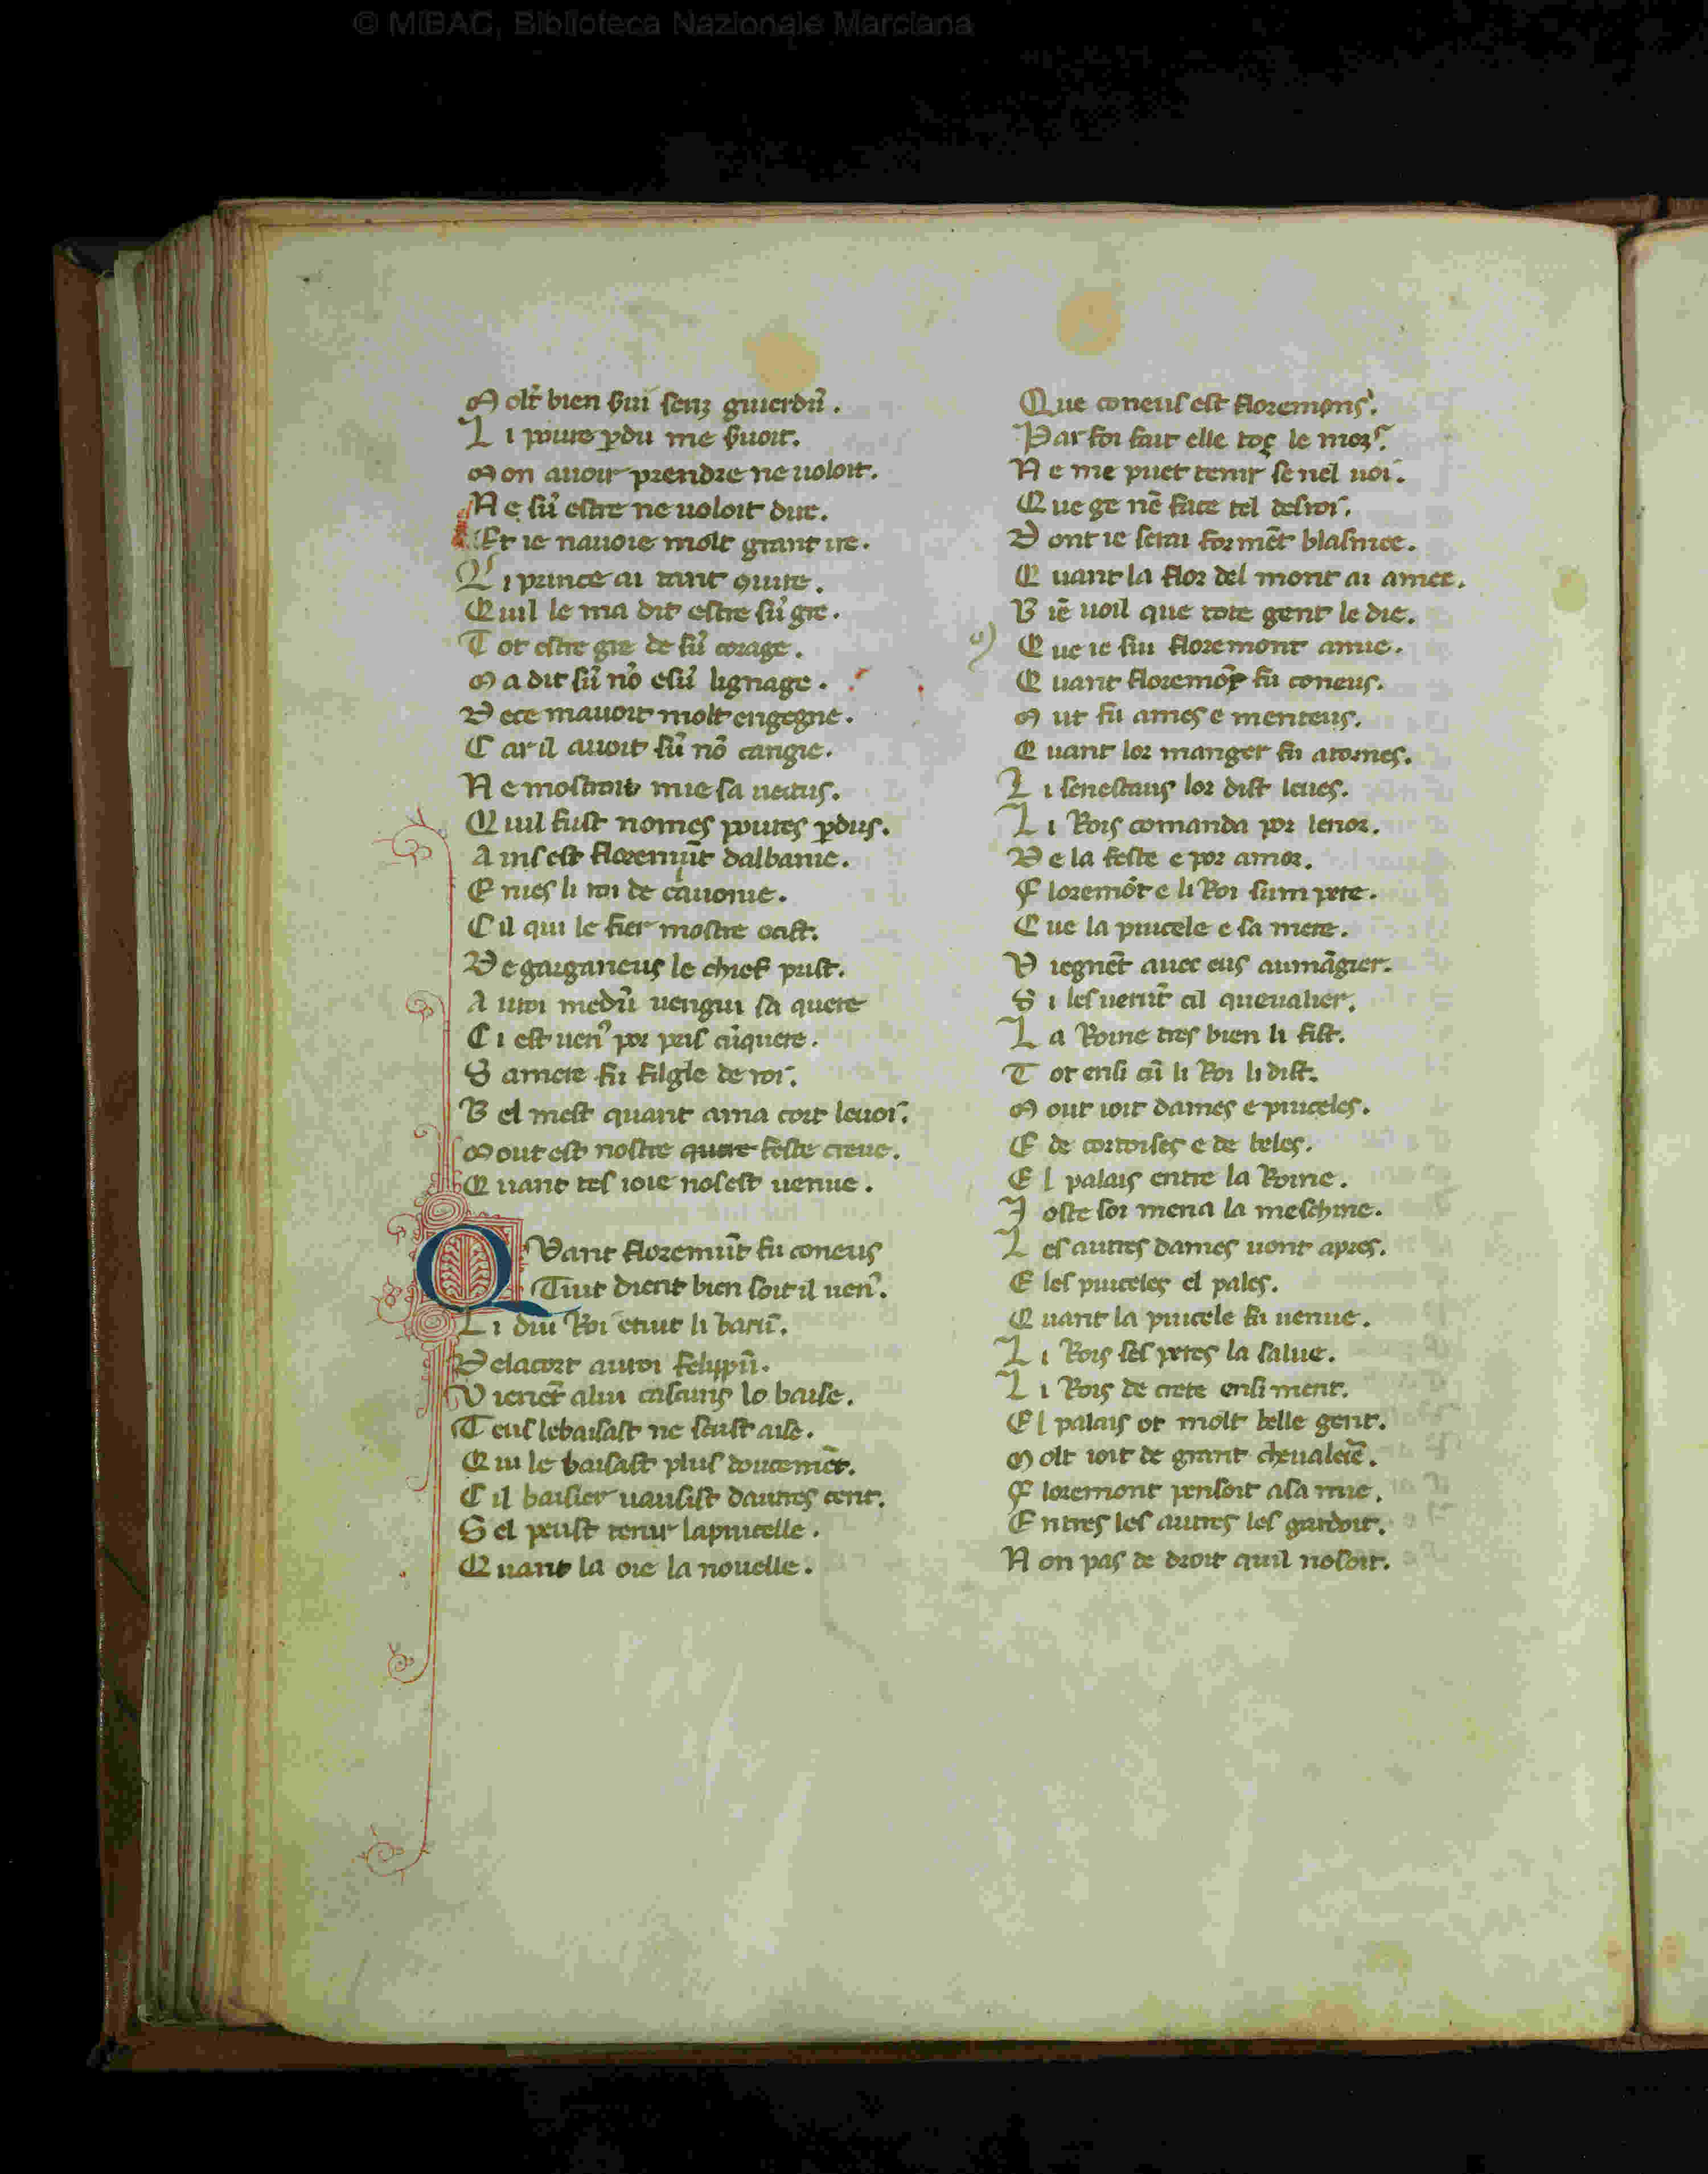 © MiBAC, Biblioteca Nazionale Marciana
M olt̃ bien s̃ui senz guierdũ.
L i poure ꝑdu me s̃uoit.
M on auoir prendre ne uoloit.
N e sũ estre ne uoloit dire.
Et ie nauoie molt grant ire.
L i prince ai tant quite.
Q uil le ma dit estre sũ gre.
T ot estre gre de sũ corage.
M a dit sũ nõ e sũ lignage.
D e ce mauoit molt engegne.
C ar il auoit sũ nõ cangie.
N e mostroit mie sa uertus.
Q uil fust nomes poures ꝑdus.
A ins est floremũt dalbanie.
E nies li roi de cauonie.
C il qui le fier mostre ocist.
D e garganeus le chief prist.
A uoi medũ uengui sa quere
C i est uenꝰ por pris cũquere.
S a mere fu filgle de roi.
B el mest quant a ma cort le uoi.
M out est nostre quere feste creue.
Q uant tel ioie nos est uenue.
Q Vant floremũt fu coneus
Tuit dient bien soit il uenꝰ.
L i dui Roi e tuit li barũ.
D e la cort au roi felippũ.
V ienẽt a lui cascuns lo baise.
T eus le baisast ne seust aise.
Q ui le baisast plus doucemẽt.
C il baisier uausist dautres cent.
S el peust tenir la pucelle.
Q uant la oie la nouelle.
Que coneus est floremons.
Par foi fait elle toç le mors.
N e me puet tenir se nel uoi.
Q ue ge nẽ face tel desroi.
D ont ie serai formẽt blasmee.
Q uant la flor del mont ai amee.
B iẽ uoil que tote gent le die.
Q ue ie sui floremont amie.
Q uant floremõt fu coneus.
M ut fu ames e menteus.
Q uant lor manger fu atornes.
L i senescaus lor dist leues.
L i Rois comanda por lenor.
D e la feste e por amor.
F loremõt e li Roi sum pere.
Q ue la pucele e sa mere.
V iegnẽt auec eus au mãgier.
S i les uerũt cil queualier.
L a Roine tres bien li fist.
T ot ensi cũ li Roi li dist.
M out ioit dames e puceles.
E de cortoises e de beles.
E l palais entre la Roine.
I oste soi mena la meschine.
L es autres dames uont apres.
E les puceles el pales.
Q uant la pucele fu uenue.
L i Rois ses peres la salue.
L i Rois de crete ensiment.
E l palais ot molt belle gent.
M olt ioit de grant cheualeiẽ.
F loremont pensoit a sa mie.
E ntres les autres les gardoit.
N on pas de droit quil nosoit.